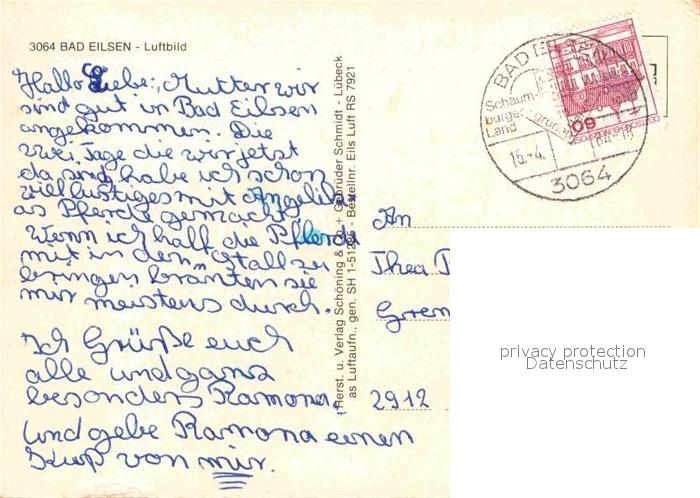 3064 BAD EILSEN - Luftbild
Hallo Liebe Mutter wir
sind gut in Bad Eilsen
angekommen. Die
zwei Tage die wir jetzt
da sind habe ich schon
viel lustiges mit Angelika
as Pferde gemacht
Wenn ich half die Pferde
mit in den Stall zu
bringen bränten sie
mir meistens durch.
Ich Grüße euch
alle und ganz
besonders Ramona.
Und gebe Ramona einen
Kuß von mir.
Herst. u. Verlag Schöning & Co. + Gebrüder Schmidt - Lübeck
as Luftaufn., gen. SH 1-512 - Bestellnr. Eils Luft RS 7921
BAD EILSEN
Schaum-
burger
Land
15.-4.
3064
60
DEUTSCHE BUNDESPOST
An
Thea
2912
privacy protection
Datenschutz